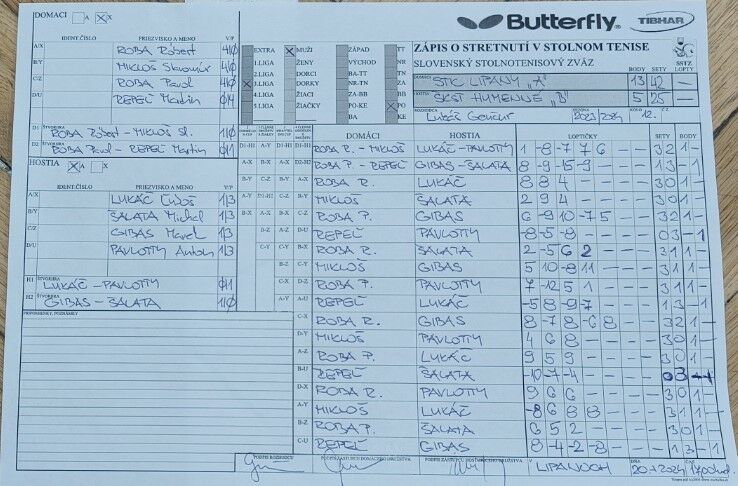 DOMACI A X
Butterfly TIBHAR
IDENT.ČÍSLO PRIEZVISKO A MENO V/P
A/X ROBA Róbert 4/0
B/Y MIKLOŠ Slavomír 4/0
C/Z ROBA Pavol 4/0
D/U REPEL Martin 0/4
EXTRA MUŽI ZÁPAD TT
1.LIGA ŽENY VÝCHOD NR
2.LIGA DORCI BA-TT TN
3.LIGA DORKY NR-TN ZA
4.LIGA ŽIACI ZA-BB BB
5.LIGA ŽIAČKY PO-KE PO
BA KE
ZÁPIS O STRETNUTÍ V STOLNOM TENISE
SLOVENSKÝ STOLNOTENISOVÝ ZVÄZ
SSTZ
BODY SETY LOPTY
DOMÁCI STK LIPANY „A" 13 42 –
HOSTIA SKST HUMENNÉ „B" 5 25 –
12.
D1 ŠTVORHRA ROBA Róbert - MIKLOŠ Sl. 1/0
D2 ŠTVORHRA ROBA Pavol - REPEL Martin 0/1
HOSTIA X A X
IDENT.ČÍSLO PRIEZVISKO A MENO V/P
A/X LUKÁČ Ľuboš 1/3
B/Y ŠALATA Michal 1/3
C/Z GIBAS Marek 1/3
D/U PAVLOTTY Anton 1/3
H1 ŠTVORHRA LUKÁČ - PAVLOTTY 0/1
H2 ŠTVORHRA GIBAS - ŠALATA 1/0
PRIPOMIENKY, POZNÁMKY
DOMÁCI HOSTIA LOPTIČKY SETY BODY
ROBA R. - MIKLOŠ LUKÁČ-PAVLOTTY 1 -8 -7 7 6 – – 3 2 1 –
ROBA P. - REPEL GIBAS-ŠALATA 8 -9 -15 -9 – – – 1 3 – 1
ROBA R. LUKÁČ 8 8 4 – – – – 3 0 1 –
MIKLOŠ ŠALATA 2 9 4 – – – – 3 0 1 –
ROBA P. GIBAS 6 -9 -10 7 5 – – 3 2 1 –
REPEL PAVLOTTY -8 -5 -8 – – – – 0 3 – 1
ROBA R. ŠALATA 2 -5 6 2 – – – 3 1 1 –
MIKLOŠ GIBAS 5 10 -8 11 – – – 3 1 1 –
ROBA P. PAVLOTTY 7 -12 5 1 – – – 3 1 1 –
REPEL LUKÁČ -5 8 -9 -7 – – – 1 3 – 1
ROBA R. GIBAS 8 -7 8 -6 8 – – 3 2 1 –
MIKLOŠ PAVLOTTY 4 6 8 – – – – 3 0 1 –
ROBA P. LUKÁČ 9 5 9 – – – – 3 0 1 –
REPEL ŠALATA -10 -7 -4 – – – – 0 3 – 1
ROBA R. PAVLOTTY 9 6 6 – – – – 3 0 1 –
MIKLOŠ LUKÁČ -8 6 8 8 – – – 3 1 1 –
ROBA P. ŠALATA 6 5 2 – – – – 3 0 1 –
REPEL GIBAS 8 -4 -2 -8 – – – 1 3 – 1
PODPIS ROZHODCU
V LIPANOCH